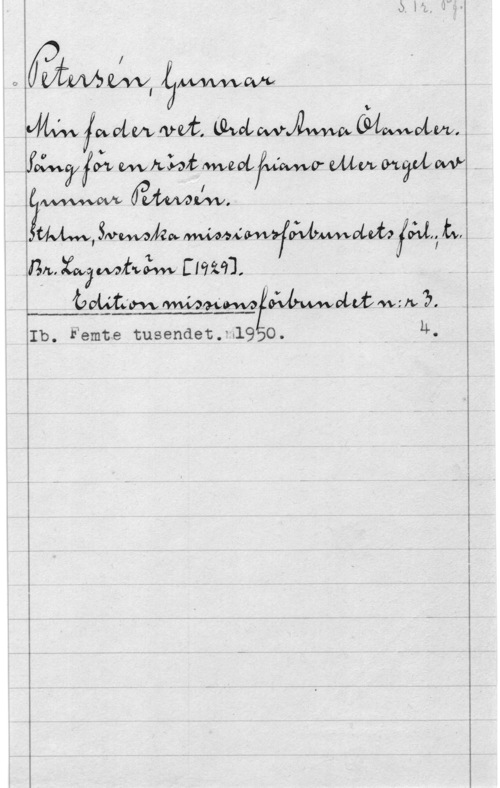 S. Tr. Pf.
Petersén, Gunnar
Min fader vet. Ord av Anna Ölander.
Sång för en röst med piano eller orgel av
Gunnar Petersén.
Sthlm, Svenska missionsförbundets förl.; tr.
Br. Lagerström [1929].
Edition missionsförbundet n:r 3.
Ib. Femte tusendet. 1950. 4.